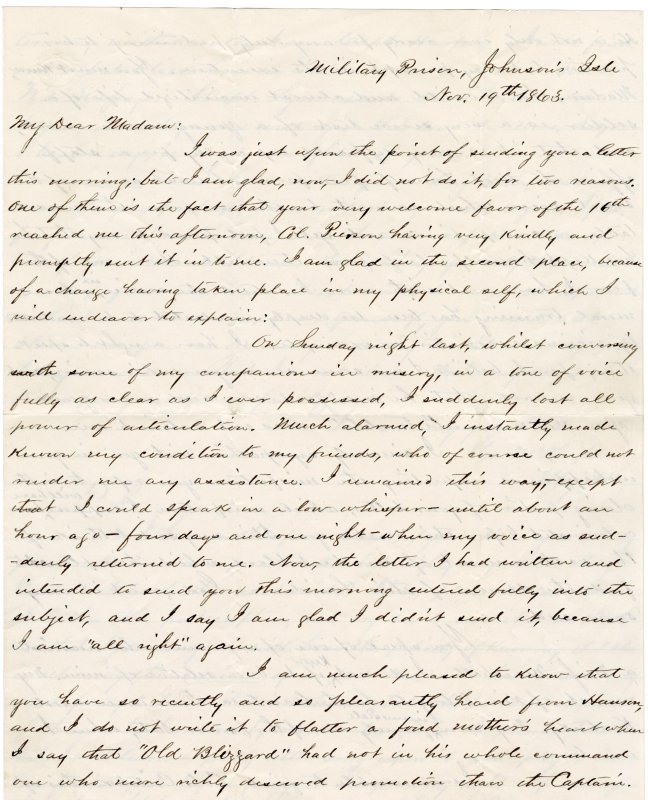 Military Prison, Johnson's Isle
Nov. 19th 1863.
My Dear Madam:
I was just upon the point of sending you a letter
this morning; but I am glad, now, I did not do it, for two reasons.
One of them is the fact that your very welcome favor of the 16th
reached me this afternoon, Col. Pierson having very kindly and
promptly sent it in to me. I am glad in the second place, because
of a change having taken place in my physical self, which I
will endeavor to explain:
On Sunday night last, whilst conversing
with some of my companions in misery, in a tone of voice
fully as clear as I ever possessed, I suddenly lost all
power of articulation. Much alarmed, I instantly made
known my condition to my friends, who of course could not
render me any assistance. I remained this way,—except
that I could speak in a low whisper—until about an
hour ago—four days and one night—when my voice as sud-
-denly returned to me. Now, the letter I had written and
intended to send you this morning entered fully into the
subject, and I say I am glad I didn't send it, because
I am "all right" again.
I am much pleased to know that
you have so recently and so pleasantly heard from Hanson,
and I do not write it to flatter a fond mother's heart when
I say that "Old Blizzard" had not in his whole command
one who more richly deserved promotion than the Captain.